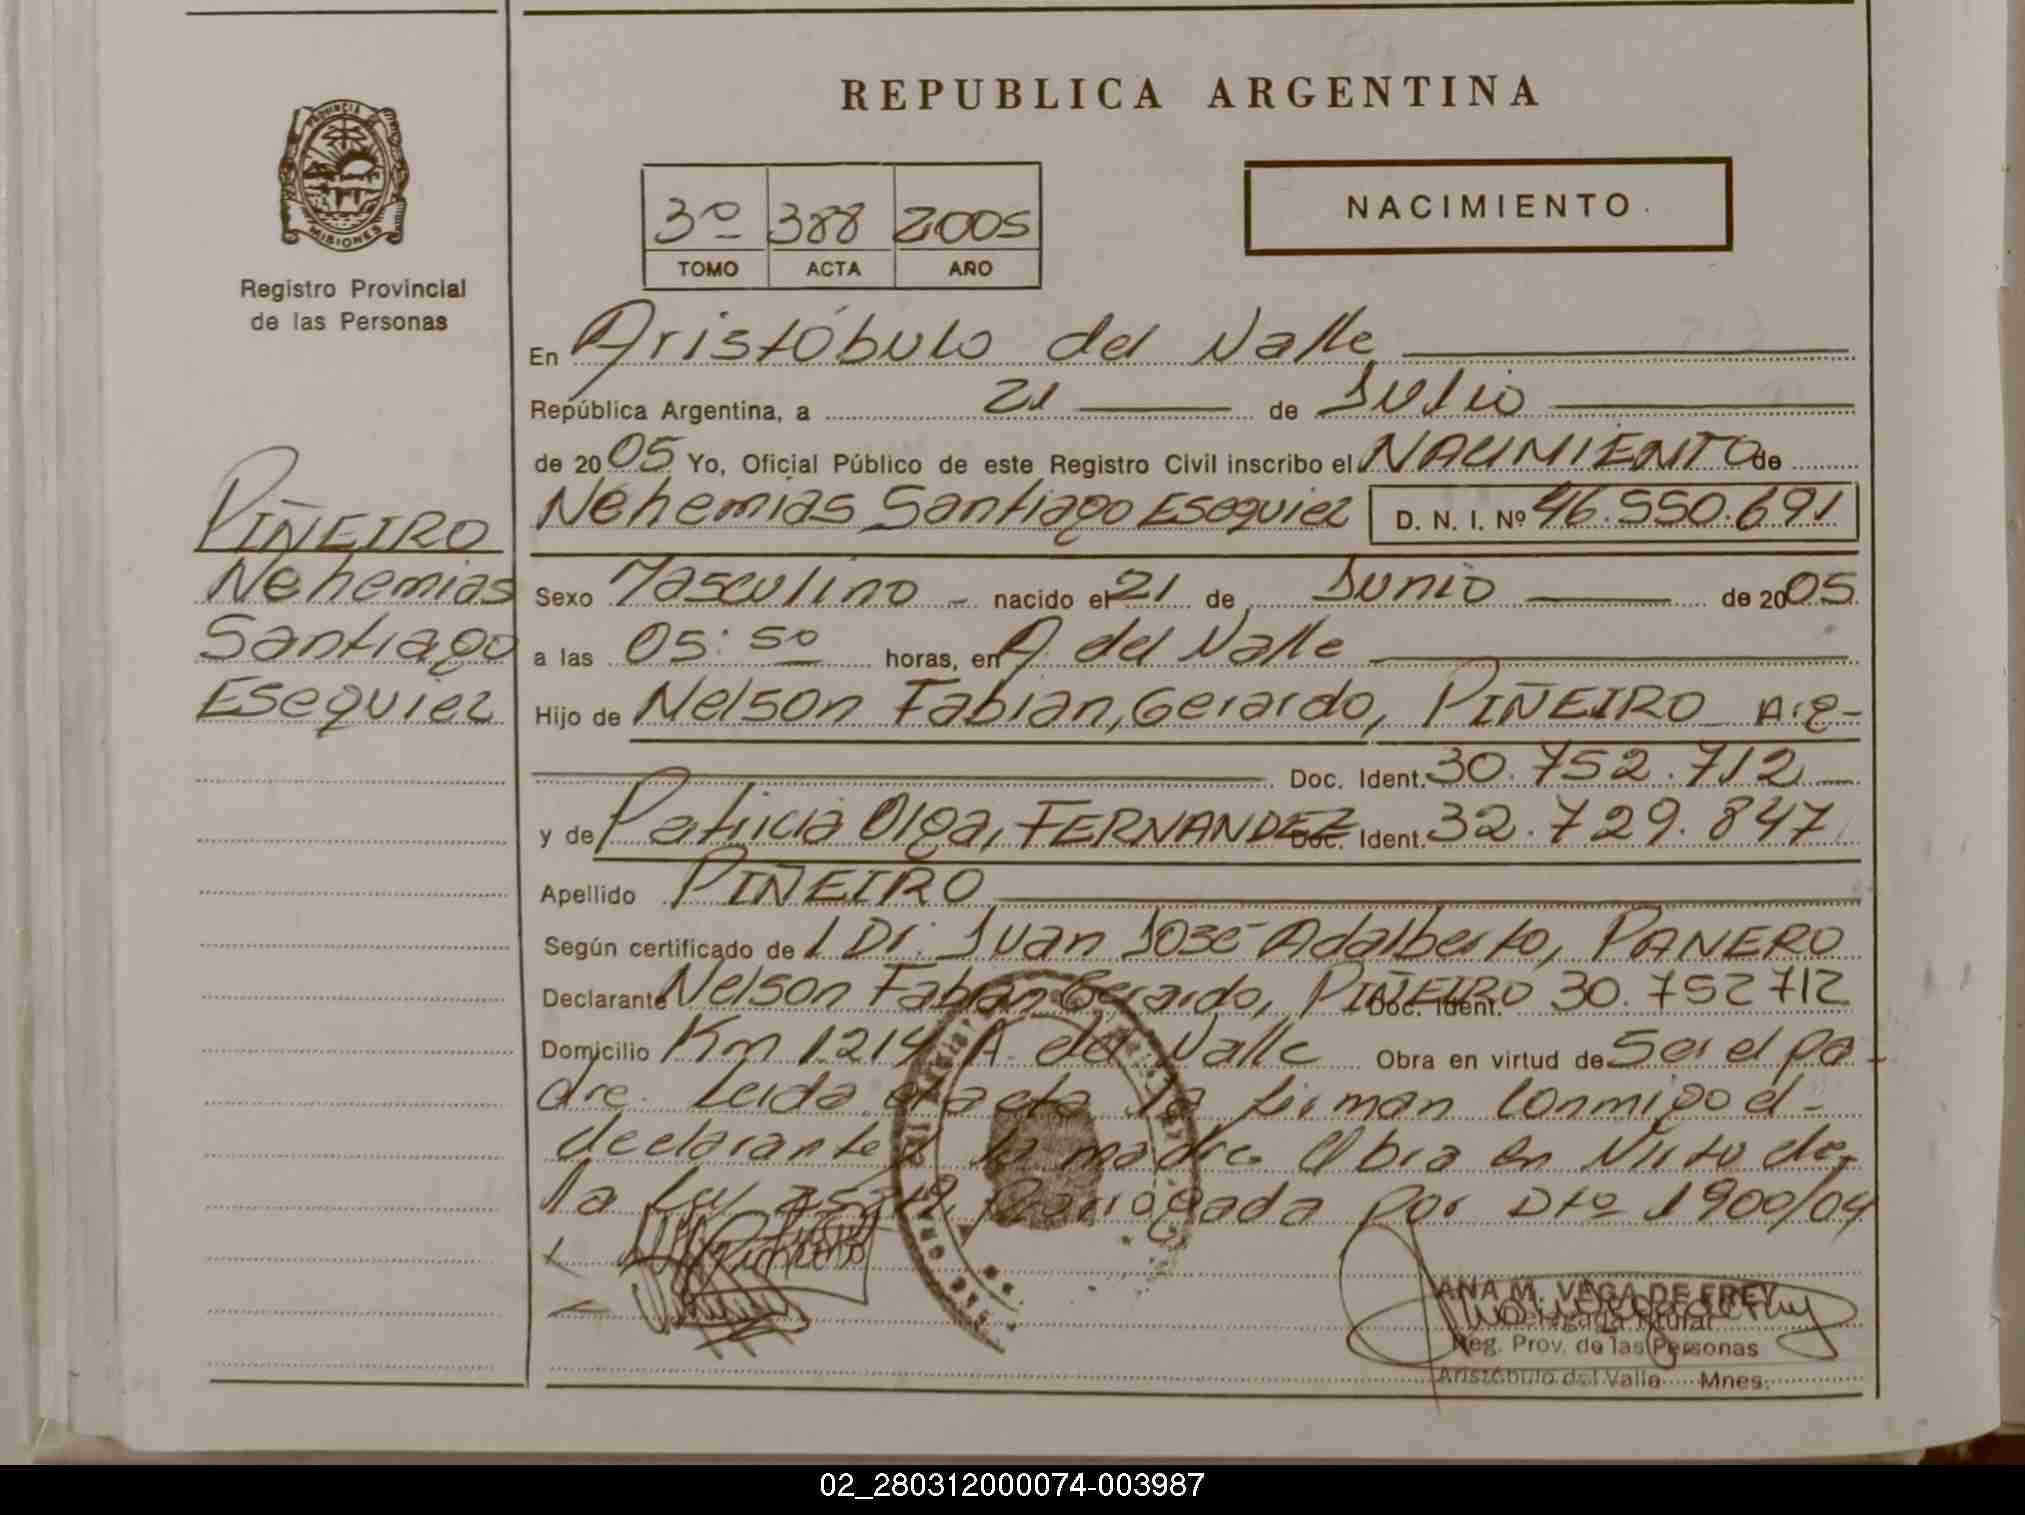 REPUBLICA ARGENTINA
PROVINCIA DE
MISIONES
Registro Provincial
de las Personas
3º 388 2005
TOMO ACTA AÑO
NACIMIENTO
En Aristóbulo del Valle
República Argentina, a 21 de Julio
de 2005 Yo, Oficial Público de este Registro Civil inscribo el NACIMIENTO de
Nehemias Santiago Esequiel D. N. I. Nº 46.550.691
PIÑEIRO
Nehemias
Santiago
Esequiel
Sexo Masculino nacido el 21 de Junio de 2005
a las 05:50 horas, en A del Valle
Hijo de Nelson Fabian, Gerardo, PIÑEIRO Arg-
Doc. Ident. 30.752.712
y de Patricia Olga, FERNANDEZ Doc. Ident. 32.729.847
Apellido PIÑEIRO
Según certificado de l Dr. Juan José Adalberto, PANERO
Declarante Nelson Fabian Gerardo, PIÑEIRO Doc. Ident. 30.752712
Domicilio Km 1214 A. del Valle Obra en virtud de Ser el pa-
dre. Leida el acta la firman conmigo el
declarante y la madre. Obra en Virtu de
la Ley Porrogada por Dto 1900/04
ANA M. VEGA DE FREY
Delegada Titular
Reg. Prov. de las Personas
Aristóbulo del Valle Mnes.
02_280312000074-003987